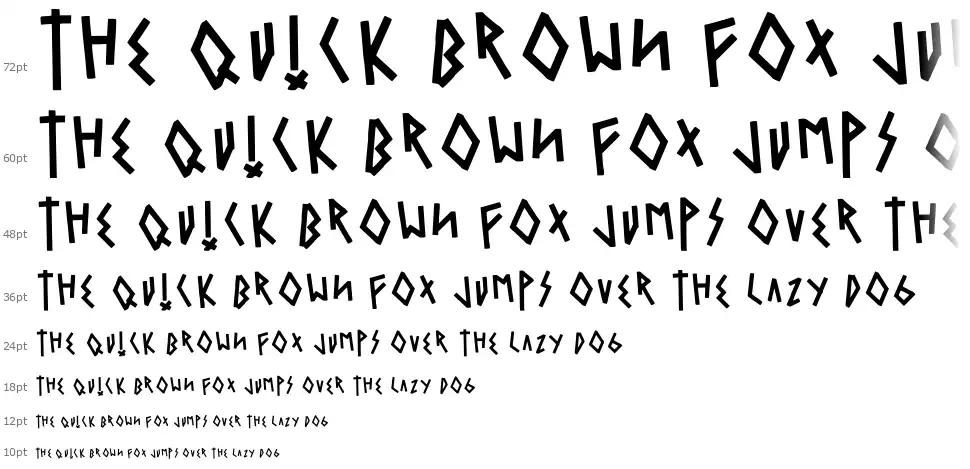 72pt THE QUICK BROWN FOX JU
60pt THE QUICK BROWN FOX JUMPS O
48pt THE QUICK BROWN FOX JUMPS OVER THE
36pt THE QUICK BROWN FOX JUMPS OVER THE LAZY DOG
24pt THE QUICK BROWN FOX JUMPS OVER THE LAZY DOG
18pt THE QUICK BROWN FOX JUMPS OVER THE LAZY DOG
12pt THE QUICK BROWN FOX JUMPS OVER THE LAZY DOG
10pt THE QUICK BROWN FOX JUMPS OVER THE LAZY DOG